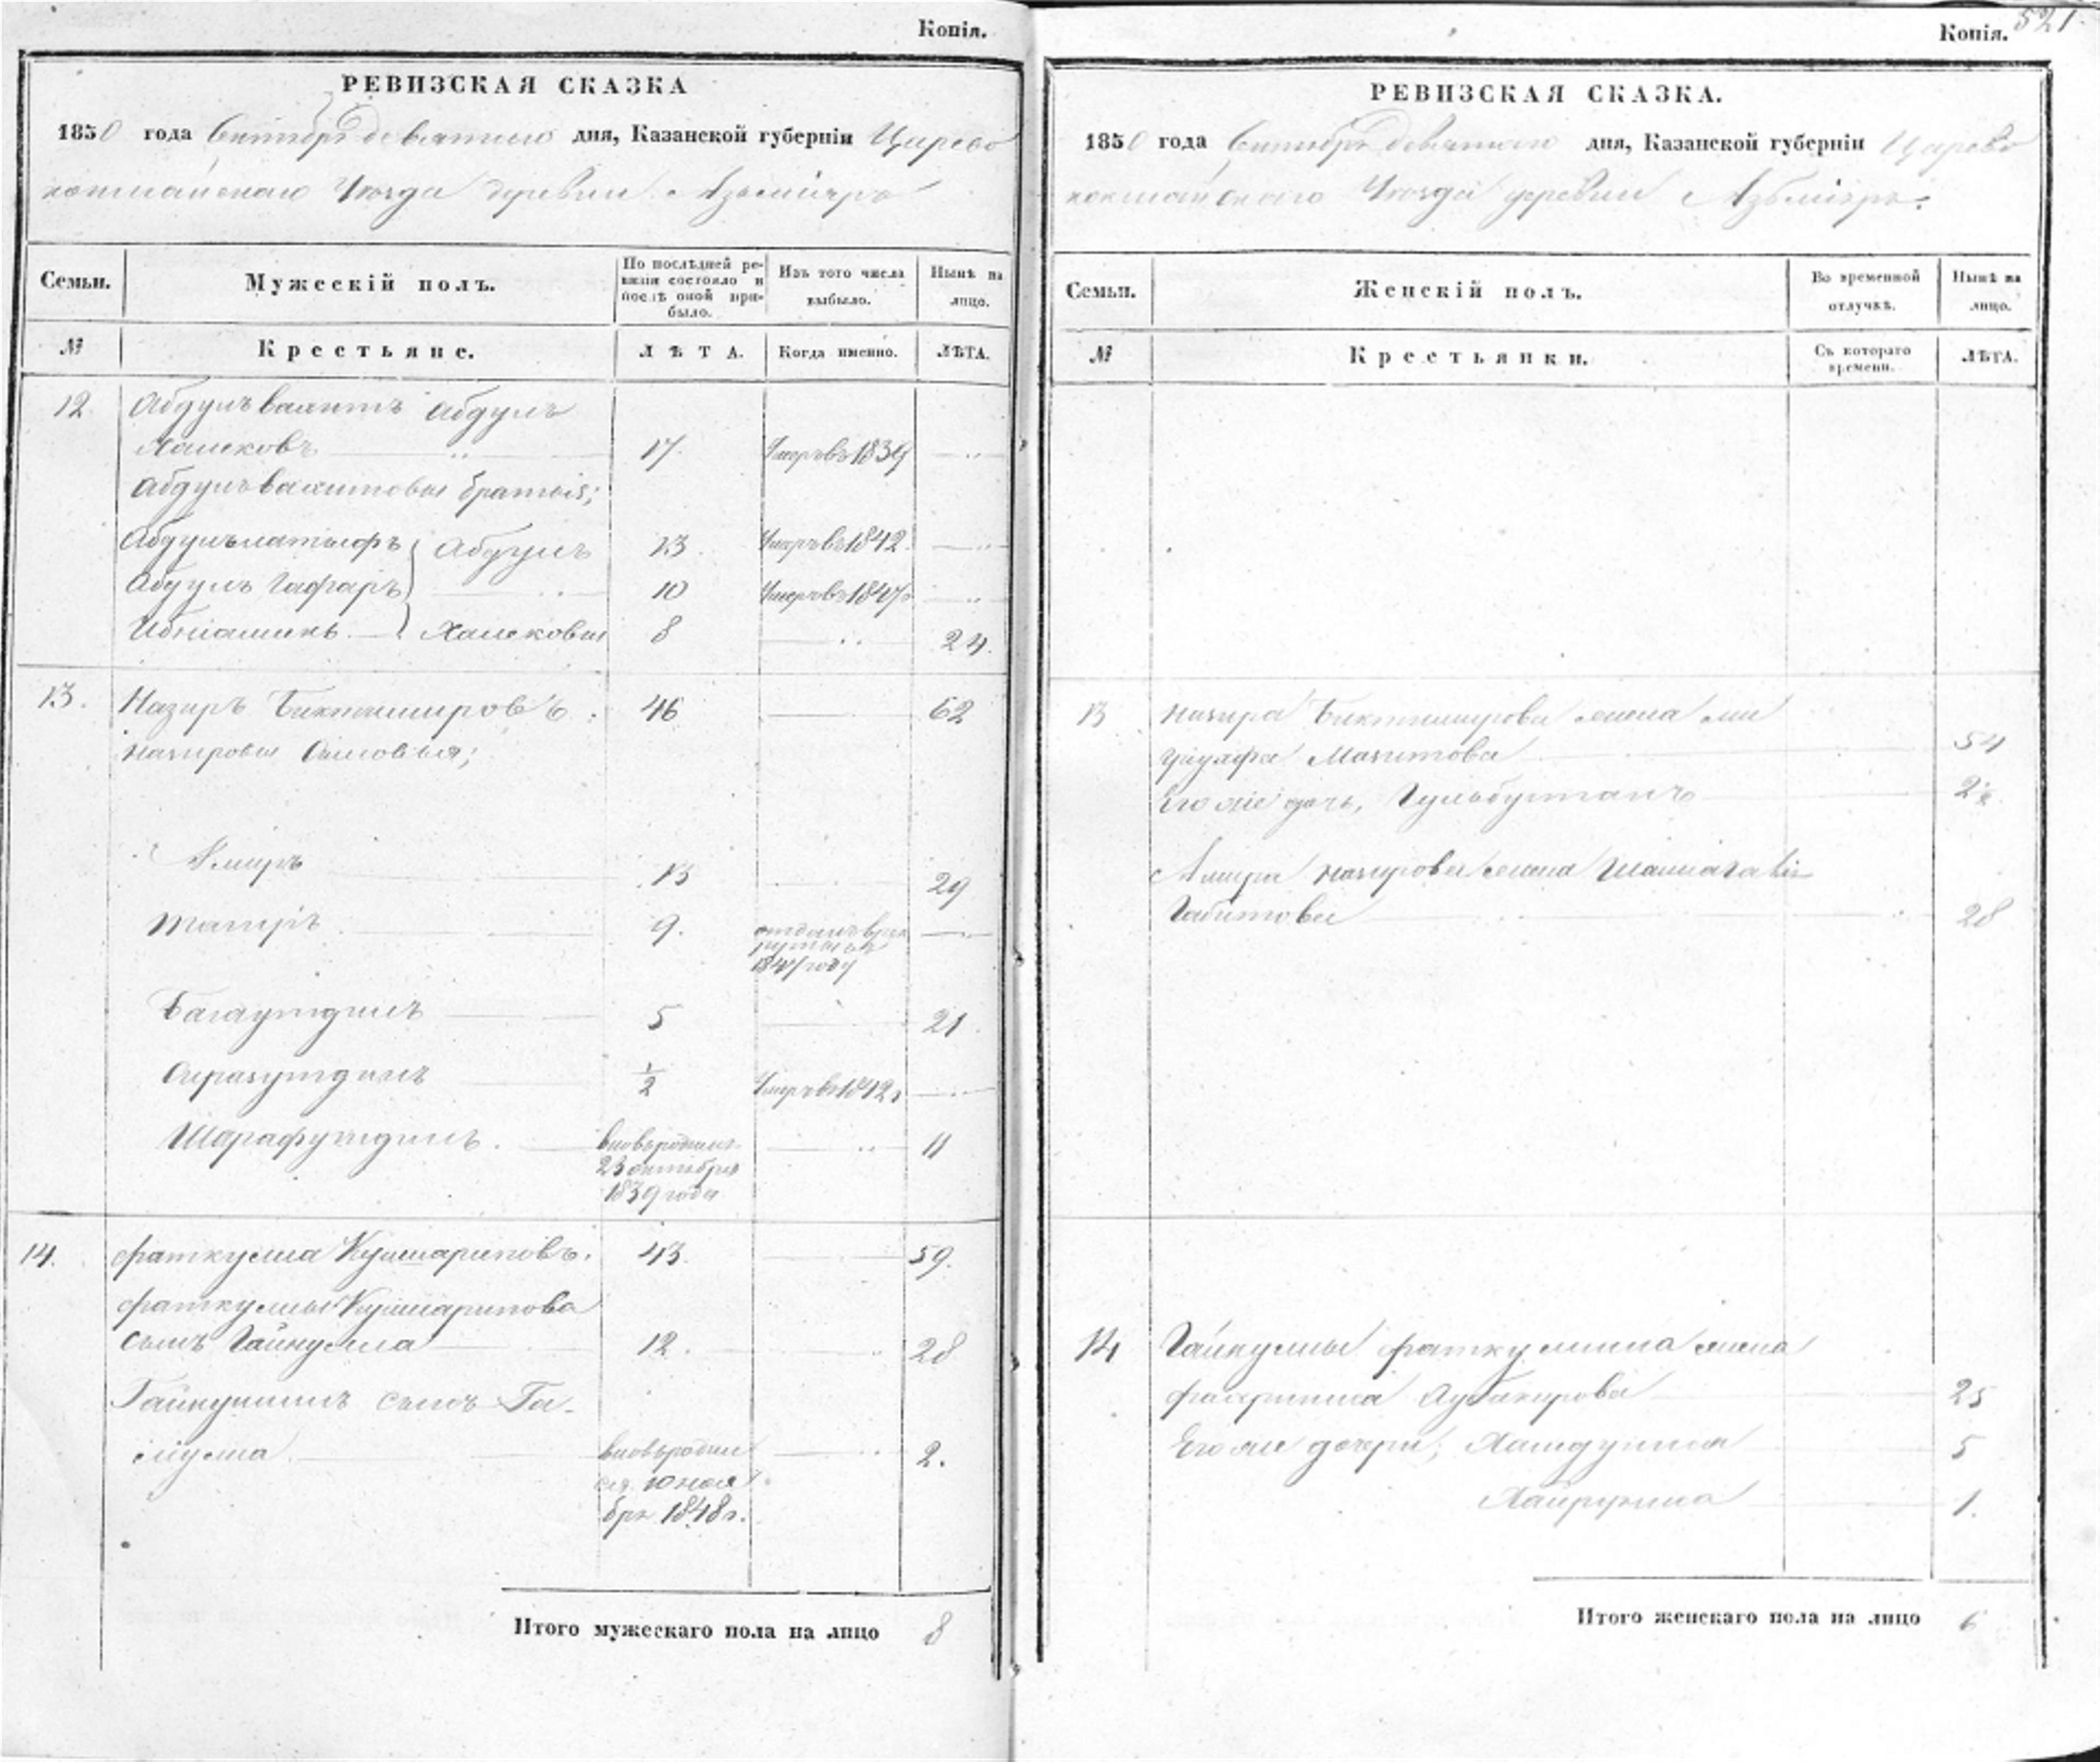 Копія.
РЕВИЗСКАЯ СКАЗКА
1850 года Октября девятаго дня, Казанской губерніи Царево
кокшайскаго Уѣзда деревни Азьмѣръ
Семьи. Мужескій полъ. По послѣдней ре-визіи состояло и послѣ оной при-было. Изъ того числа выбыло. Нынѣ на лицо.
№ Крестьяне. ЛѢТА. Когда именно. ЛѢТА.
12. Абдулъвахитъ Абдулъ
Халиковъ 17. Умеръ въ 1839
Абдулъвахитовы братья;
Абдулълатыфъ Абдулъ 13. Умеръ въ 1842.
Абдулъ Гафаръ 10 Умеръ въ 1847
Ибніаминъ. Халиковы 8 24.
13. Назиръ Биктимировъ. 46 62
Назировы Сыновья;
Амиръ 13 29
Тагиръ 9. отданъ въ рек
руты въ
1847 году
Багаутдинъ 5 21.
½ Умеръ въ 1842
Шарафутдинъ. вновьрожден. 11
23 октября
1839 года
14. Фаткулла Кушариповъ. 43. 59.
Фаткуллы Кушарипова
сынъ Гайнулла 12. 28
Гайнуллинъ сынъ Га-
вновьродил 2.
ся 10 ноя
бря 1848 г.
Итого мужескаго пола на лицо 8
521
Копія.
РЕВИЗСКАЯ СКАЗКА.
1850 года Октября девятаго дня, Казанской губерніи Царево
кокшайскаго Уѣзда деревни Азьмѣръ.
Семьи. Женскій полъ. Во временной отлучкѣ. Нынѣ на лицо.
№ Крестьянки. Съ котораго времени. ЛѢТА.
13 Назира Биктимирова жена
54
Его же дочь, Гульбустанъ
Амира Назирова жена
Габитова 28
14 Гайнуллы Фаткуллина жена
25
Его же дочери; 5
1.
Итого женскаго пола на лицо 6